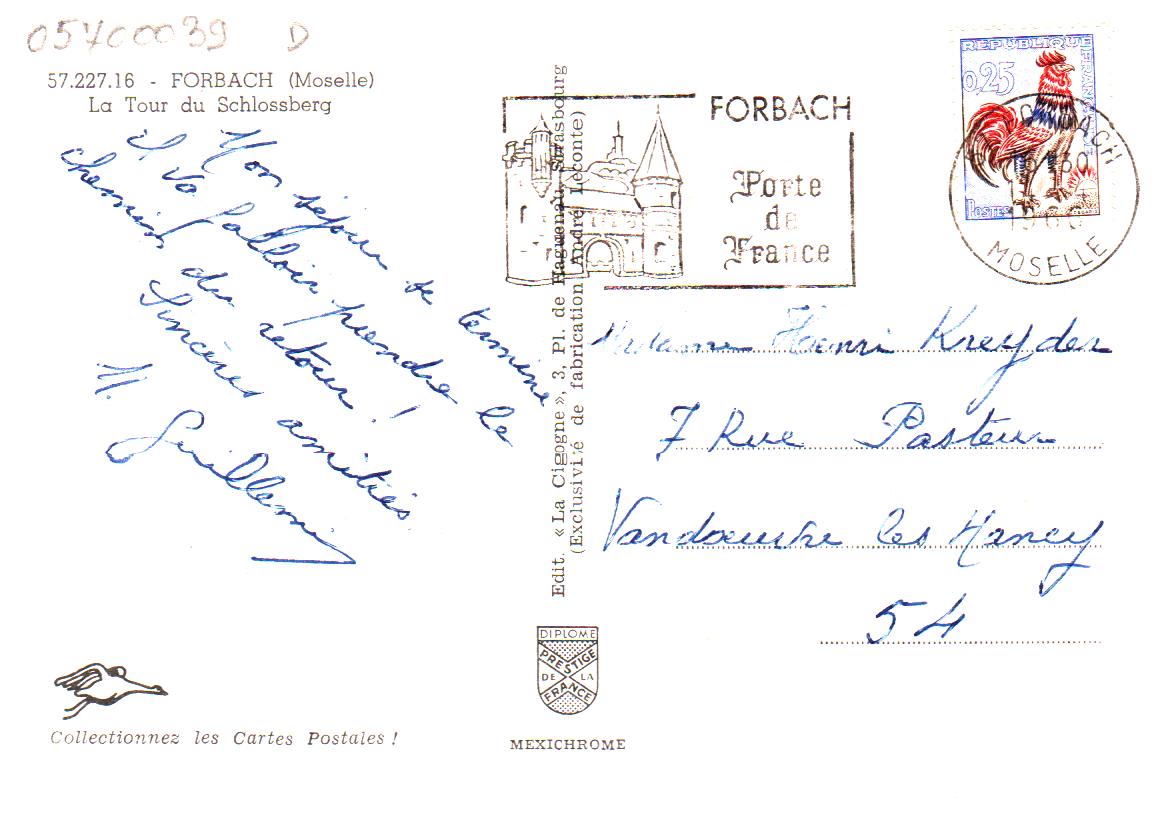 05700039 D
57.227.16 - FORBACH (Moselle)
La Tour du Schlossberg
Mon séjour se termine
il va falloir prendre le
chemin du retour !
Sincères amitiés.
H. Guillemin
Edit. «La Cigogne», 3, Pl. de Haguenau, Strasbourg
(Exclusivité de fabrication André Leconte)
FORBACH
Porte
de
France
REPUBLIQUE FRANCAISE
0,25
POSTES
FORBACH
MOSELLE
Madame Henri Kreyder
7 Rue Pasteur
Vandoeuvre les Nancy
54
DIPLOME
PRESTIGE
DE LA
FRANCE
Collectionnez les Cartes Postales !
MEXICHROME